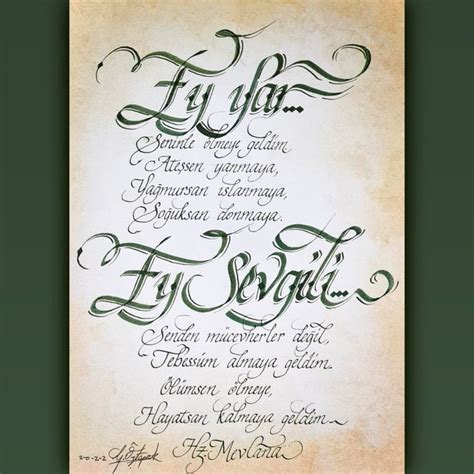 Ey yar...
Seninle ölmeye geldim
Ateşsen yanmaya,
Yağmursan ıslanmaya,
Soğuksan donmaya.
Ey Sevgili...
Senden mücevherler değil,
Tebessüm almaya geldim.
Ölümsen ölmeye,
Hayatsan kalmaya geldim
Hz. Mevlana
2-0-2-2